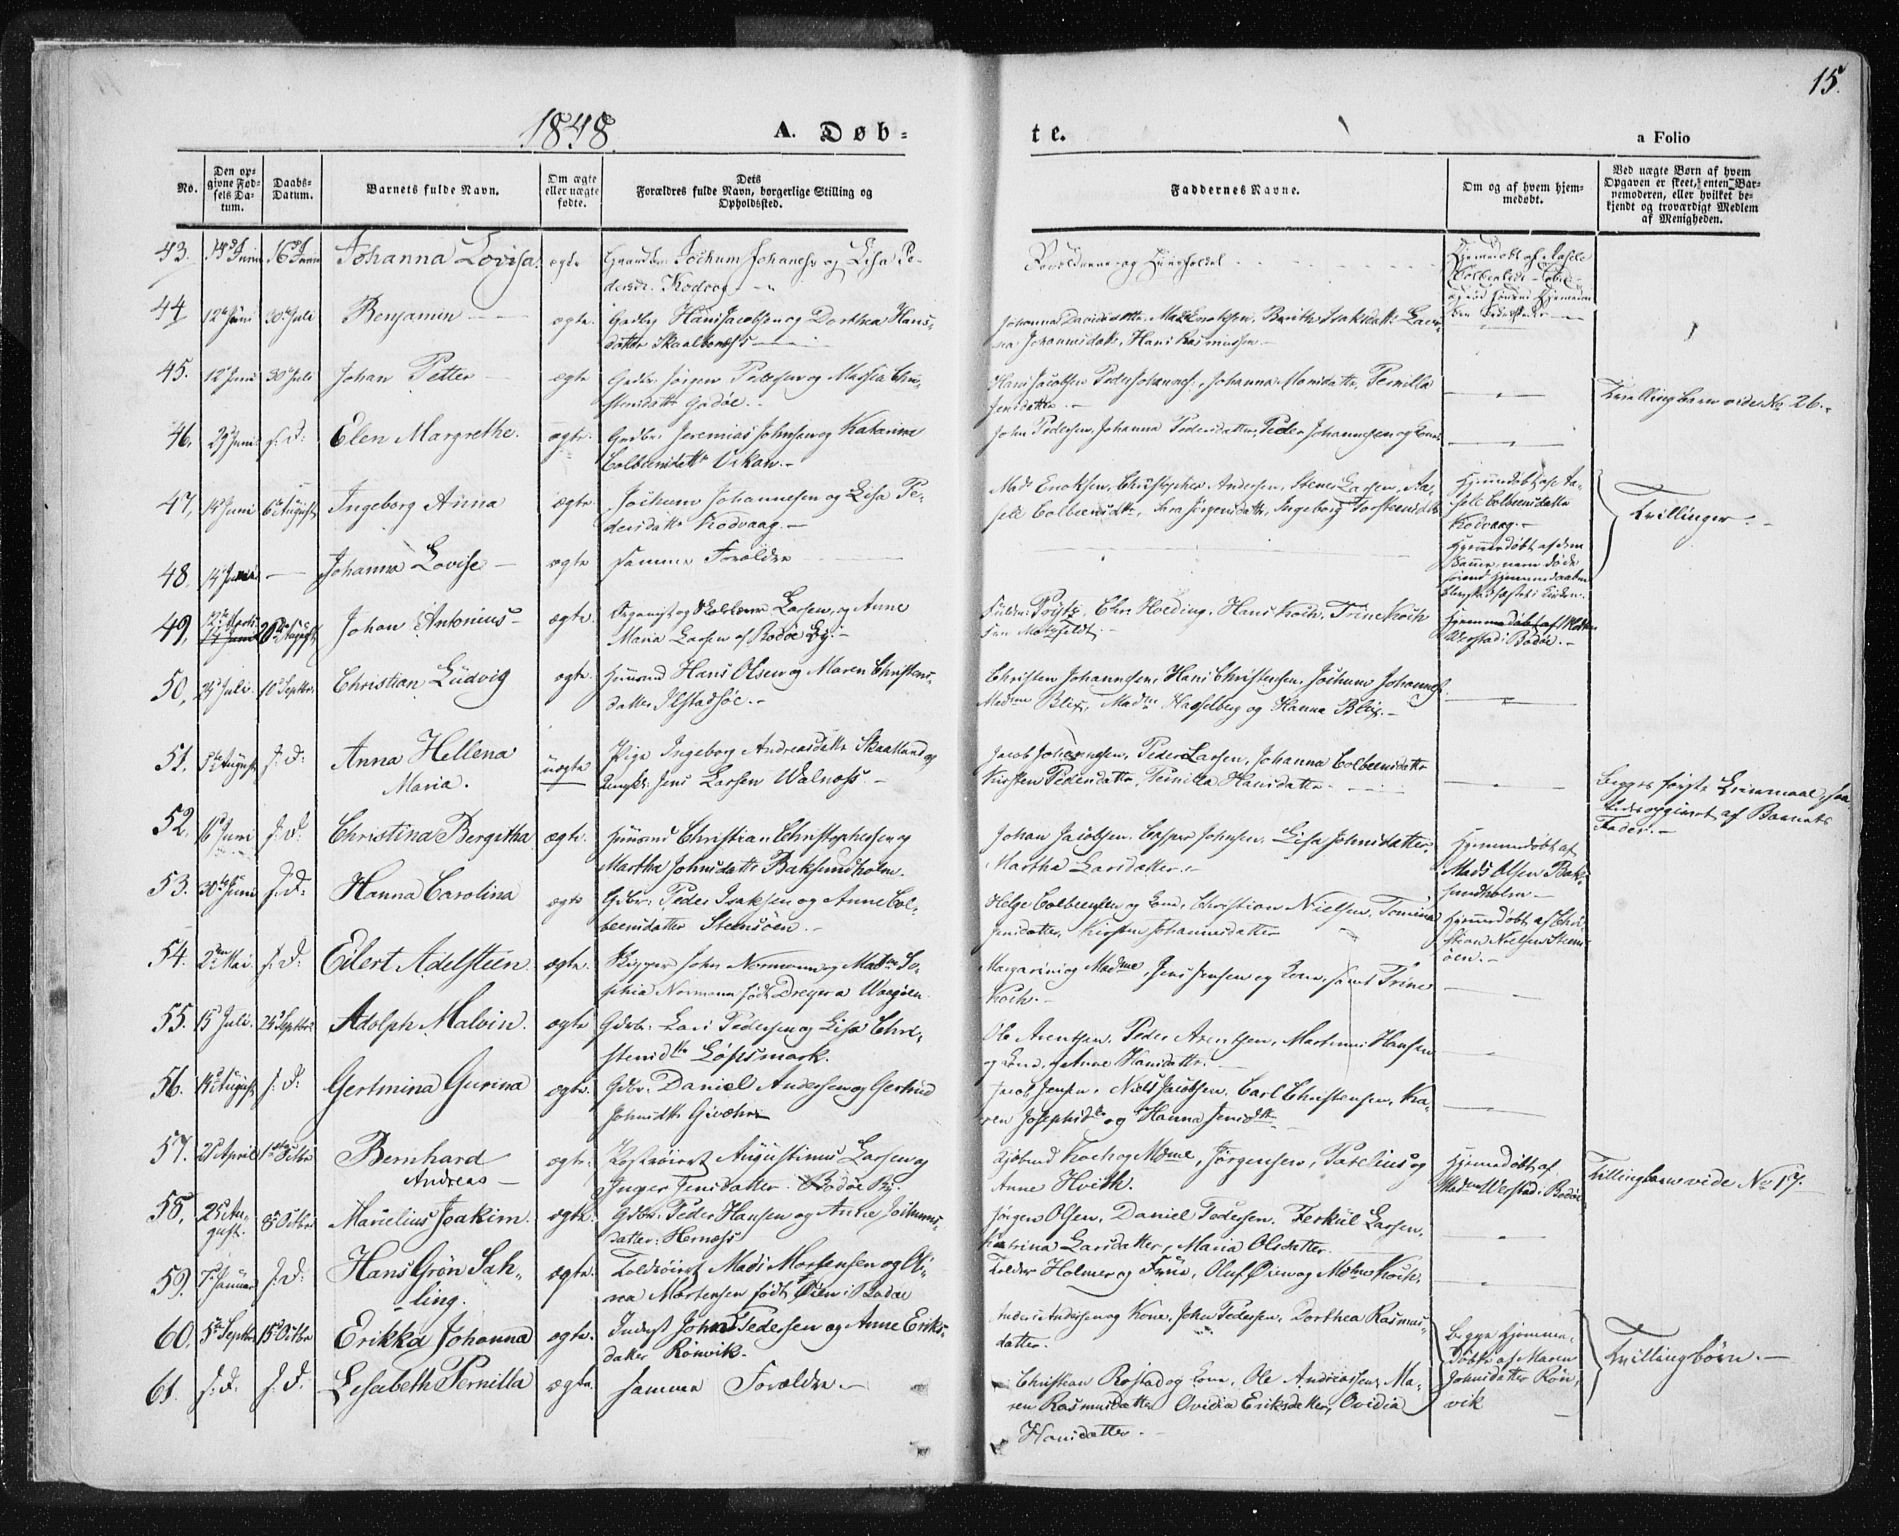 15.
1848.
A. Døb-
te.
a Folio
No.
Den op-
givne Fød-
sels Da-
tum.
Daabs-
Datum.
Barnets fulde Navn.
Om ægte
eller uægte
fødte.
Dets
Forældres fulde Navn, borgerlige Stilling og
Opholdssted.
Faddernes Navne.
Om og af hvem hjem-
medøbt.
Ved uægte Børn af hvem
Opgaven er skeet, enten Bar-
nemoderen, eller hvilket be-
kjendt og troværdigt Medlem
af Menigheden.
43. 14 Juni 16 Juni Johanna Lovisa. ægte Jochum Johannes og Lisa Pe-
dersdr. Kodvaag
44 12 Juni 30 Juli Benjamin ægte. Gadbr Hans Jacobsen og Dorthea Hans-
datter Skaalbones
Johanna Davidsdatter, Mads Enoksen, Berith Isaksdatter
Johannesdatr, Hans Rasmussen
45. 12 Juni 30 Juli Johan Petter ægte Gaardbr. Jørgen Pedersen og Massia Chri-
stensdatter Godøe.
Hans Jacobsen Peder Johannes. Johanna Monsdatter, Pernilla
Jensdatter.
Tvillingbarn vide No. 26.
46. 29 Juni s. D: Elen Margrethe. ægte. Gaardbr. Jeremias Johnsen og Katarina
Colbeensdatter Vikan.
John Pedersen, Johanna Pedersdatter, Peder Johannesen og Kone
47, 14 Juni 6 August Ingeborg Anna ægte Jochum Johannesen og Lisa Pe-
dersdatter Kodvaag.
Mads Enoksen, Christopher Andersen, Stener Larsen,
Colbeensdtr, Sara Jørgensdatter, Ingeborg Torstensdtr
Hjemmedøbt af
Colbeensdatter
Kodvaag.
Tvillinger.
48 14 Juni Johanna Lovise ægte samme Forældre
Hjemmedøbt af den
samme, men døde
49, 20 August Johan Antonius ægte. Larsen, og Anne
Maria Larsen af Bodøe By.
Chr Holding, Hans Koch, Trine Koch
Fru Motzfeldt.
Hjemmedøbt af Mdm
Werstad i Bodøe.
50, 24 Juli. 10 Septbr. Christian Ludvig ægte. Huusmd Hans Olsen og Maren Christens-
datter Ilstadsøe.
Christen Johannesen, Hans Christensen, Jochum Johannes.
Madme Blix, Madme Hasselberg og Hanna Blix.
51. 5 August s. D: Anna Hellena
Maria.
uægte Pige Ingeborg Andreasdatter Skaatland og
Ungkr. Jens Larsen Walnæss
Jacob Johansen, Peder Larsen, Johanna Colbeensdatter
Kirsten Pedersdatter, Pernilla Hansdatter.
Begges første Leiermaal,
opgivet af Barnets
Fader.
52. 6 Juni s. D. Christina Bergitha ægte. Huusmd Christian Christophersen og
Martha Johnsdatter Baksundholm.
Johan Jacobsen, Casper Johnsen, Lisa Johnsdatter,
Martha Larsdatter.
Hjemmedøbt af
Mads Olsen Bak-
sundholm
53. 30 Juni s. D: Hanna Carolina ægte Gdbr. Peder Isaksen og Anne Col-
beensdatter Steensøen.
Helge Colbeensen og Kone, Christian Nielsen, Tomina
Jensdatter, Kirsten Johannesdatter
Hjemmedøbt af Chri-
stian Nielsen Steens-
øen.
54. 2 Mai s. D. Eilert Adelsteen. ægte. Skipper John Normann og Madme So-
phia Normann født Dreyer a Waagøen.
Margarini og Madme, Jens Jensen og Kone, samt Trine
Koch.
55. 15 Juli. 24 Septbr Adolph Malvin. ægte Gdbr. Lars Pedersen og Lisa Chri-
stensdtr Løpsmark.
Ole Arentsen, Peder Arentsen, Martinus Hansen
og Kone, Anne Hansdatter.
56. 14 August s. D: Gertmina Gurina ægte. Gdbr. Daniel Andersen og Gertrud
Johnsdtr Givær
Jacob Jensen, Niels Jacobsen, Carl Christensen, Ka-
ren Josephsdtr og Hanna Jensdtr.
57. 21 April 1 Octbr Bernhard
Andreas
ægte. Augustinus Larsen og
Inger Jensdatter. Bodøe By.
Kjøbmd Koch og Mdme, Jørgensen, Parelius og
Anne Hvith.
Hjemmedøbt af
Madme Werstad i Bodøe
Tvillingbarn vide No 17.
58, 25 Au-
gust. 8 Octbr Marselius Joakim. ægte. Gdbr. Peder Hansen og Anne Jochums-
datter. Hernæss
Jørgen Olsen, Daniel Pedersen, Ferkul Larsen,
Katrina Larsdatter, Maria Olsdatter.
59. 7 Januar s. D: Hans Grøn Sah-
ling.
ægte. Toldroiert Mads Mortensen og
Mortensen født Øien i Bodøe
Tolder Holmer og Frue, Oluf Øien og Mdme Koch.
60. 5 Septbr 15 Octbr Erikka Johanna ægte. Inderst John Pedersen og Anne Eriks-
datter Rønvik.
Anders Andersen og Kone, John Pedersen, Dorthea Rasmus-
datter.
Begge hjemme-
døbte af Maren
Johnsdatter Røn-
vik
Tvillingbørn.
61. s. D. s. D. Lisabeth Pernilla ægte. samme Forældre
Christian Rostad og Kone, Ole Andreassen, Ma-
ren Rasmusdatter Ovidia Eriksdatter, Ovidia
Hansdatter.